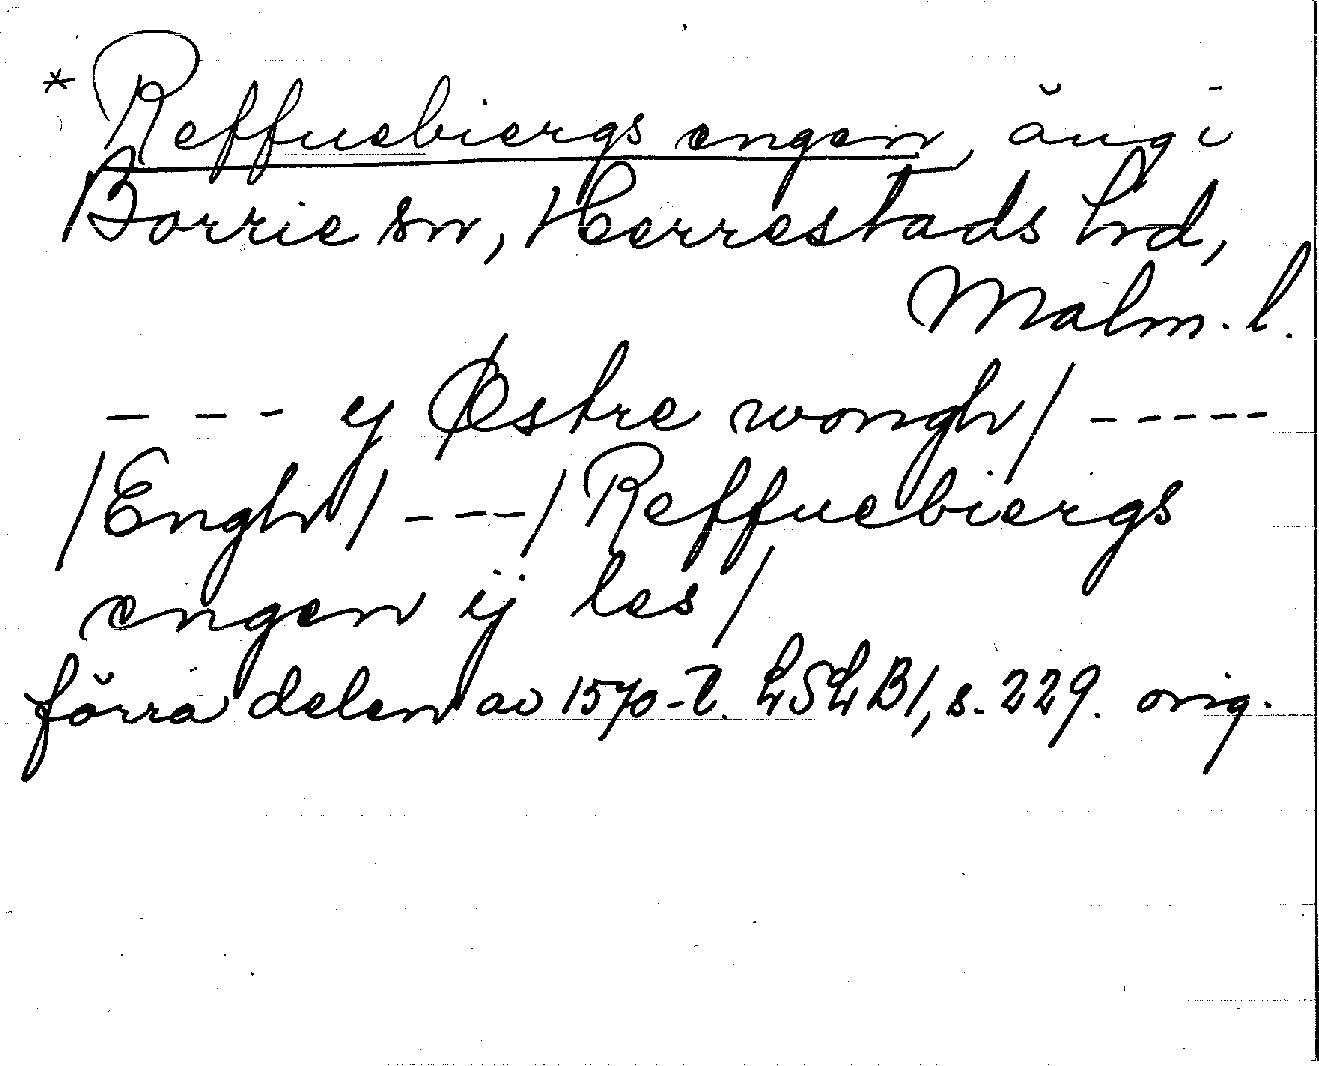 * Reffuebiergs engen, äng i
Borrie sn, Herrestads hrd,
Malm. l.
- - - y Østre wongh / - - - - -
/ Engh / - - - / Reffuebiergs
engen ij les /
förra delen av 1570-t. LSLB1, s. 229. orig.